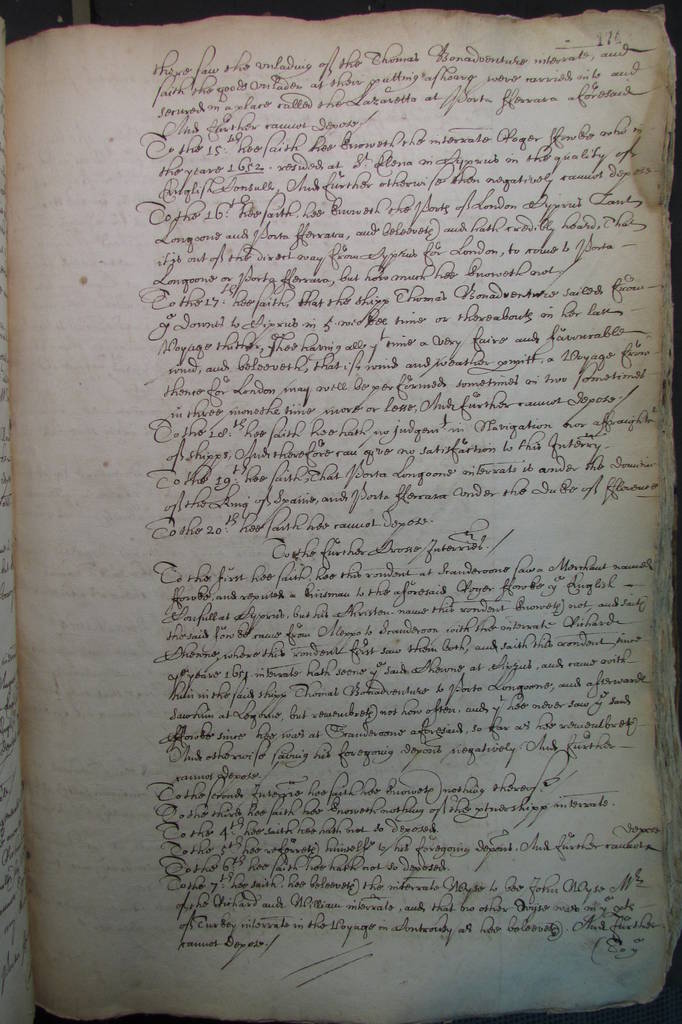 176
there saw the unlading of the Thomas Bonadventure interrate, and
saith the goods unladen at their putting ashoare were carried into and
secured in a place called the Lazaretta at Porta fferrara aforesaid
And further cannot depose./
To the 15:th hee saith hee knoweth the interrate Roger ffowke who in
the yeare 1652. resided at St Elena in Cyprus in the quality of
English Consull, And further otherwise then negatively cannot depose
To the 16:th hee saith, hee knoweth the Ports of London Cyprus
Longoone and Porta fferrara, and beleeveth and hath credibly heard, That
it is out of the direct way from Cyprus for London, to come to Porta
Longoone or Porta fferrara, but how much hee knoweth not./
To the 17:th hee saith, that the shipp Thomas Bonadventure sailed from
ye Downes to Ciprus in 5 weekes time or thereabouts in her last
Voyage thither, Shee having all yt time a very faire and favourable
wind, and beleeveth, that if wind and weather pmitt, a Voyage from
thence for London may well be performed sometimes in two sometimes
in three moneths time more or lesse, And further cannot depose./
To the 18:th hee saith hee hath no judgemt in Navigation nor affraughting
of shipps, And therefore can give no satisfaction to this Interry
To the 19:th hee saith, That Porta Longoone interrate is under the dominion
of the King of Spaine, and Porta fferrara under the Duke of fflorence
To the 20:th hee saith hee cannot depose.
To the further Crosse Interries./
To the first hee saith, hee this rondent at Scanderoone saw a Merchant named
ffowke, and reputed a kinsman to the aforesaid Roger ffowke ye English
Consull at Cyprus, but his Christen name this rondent knoweth not, and saith
the said ffowke came from Aleppo to Scanderoon with the interrate Richard
Chewne, where this rondent first saw them both, and saith this rondent since
ye yeare 1651 interrate hath seene ye said Chewne at Ciprus, and came with
him in the said shipp Thomas Bonadventure to Porto Longoone, and afterwards
saw him at Legorne, but remembreth not how often, and yt hee never saw ye said
ffowke since hee was at Scanderoone aforesaid, so far as hee remembreth
And otherwise saving his foregoing deposn negatively. And further
cannot depose.
To the second Interrie hee saith hee knoweth nothing thereof./
To the third hee saith hee knoweth nothing of the ptnershipp interrate.
To the 4:th hee saith hee hath not so deposed.
To the 5:th hee referreth himselfe to his foregoing deposn. And further cannot depose
To the 6:th hee saith hee hath not so deposed.
To the 7:th hee saith, hee beleeveth the interrate Wyse to bee John Wyse Mr
of the Richard and William interrate, and that no other Wyse was in ye pts
of Turkey interrate in the Voyage in Controversy as hee beleeveth. And further
cannot depose./
(To ye